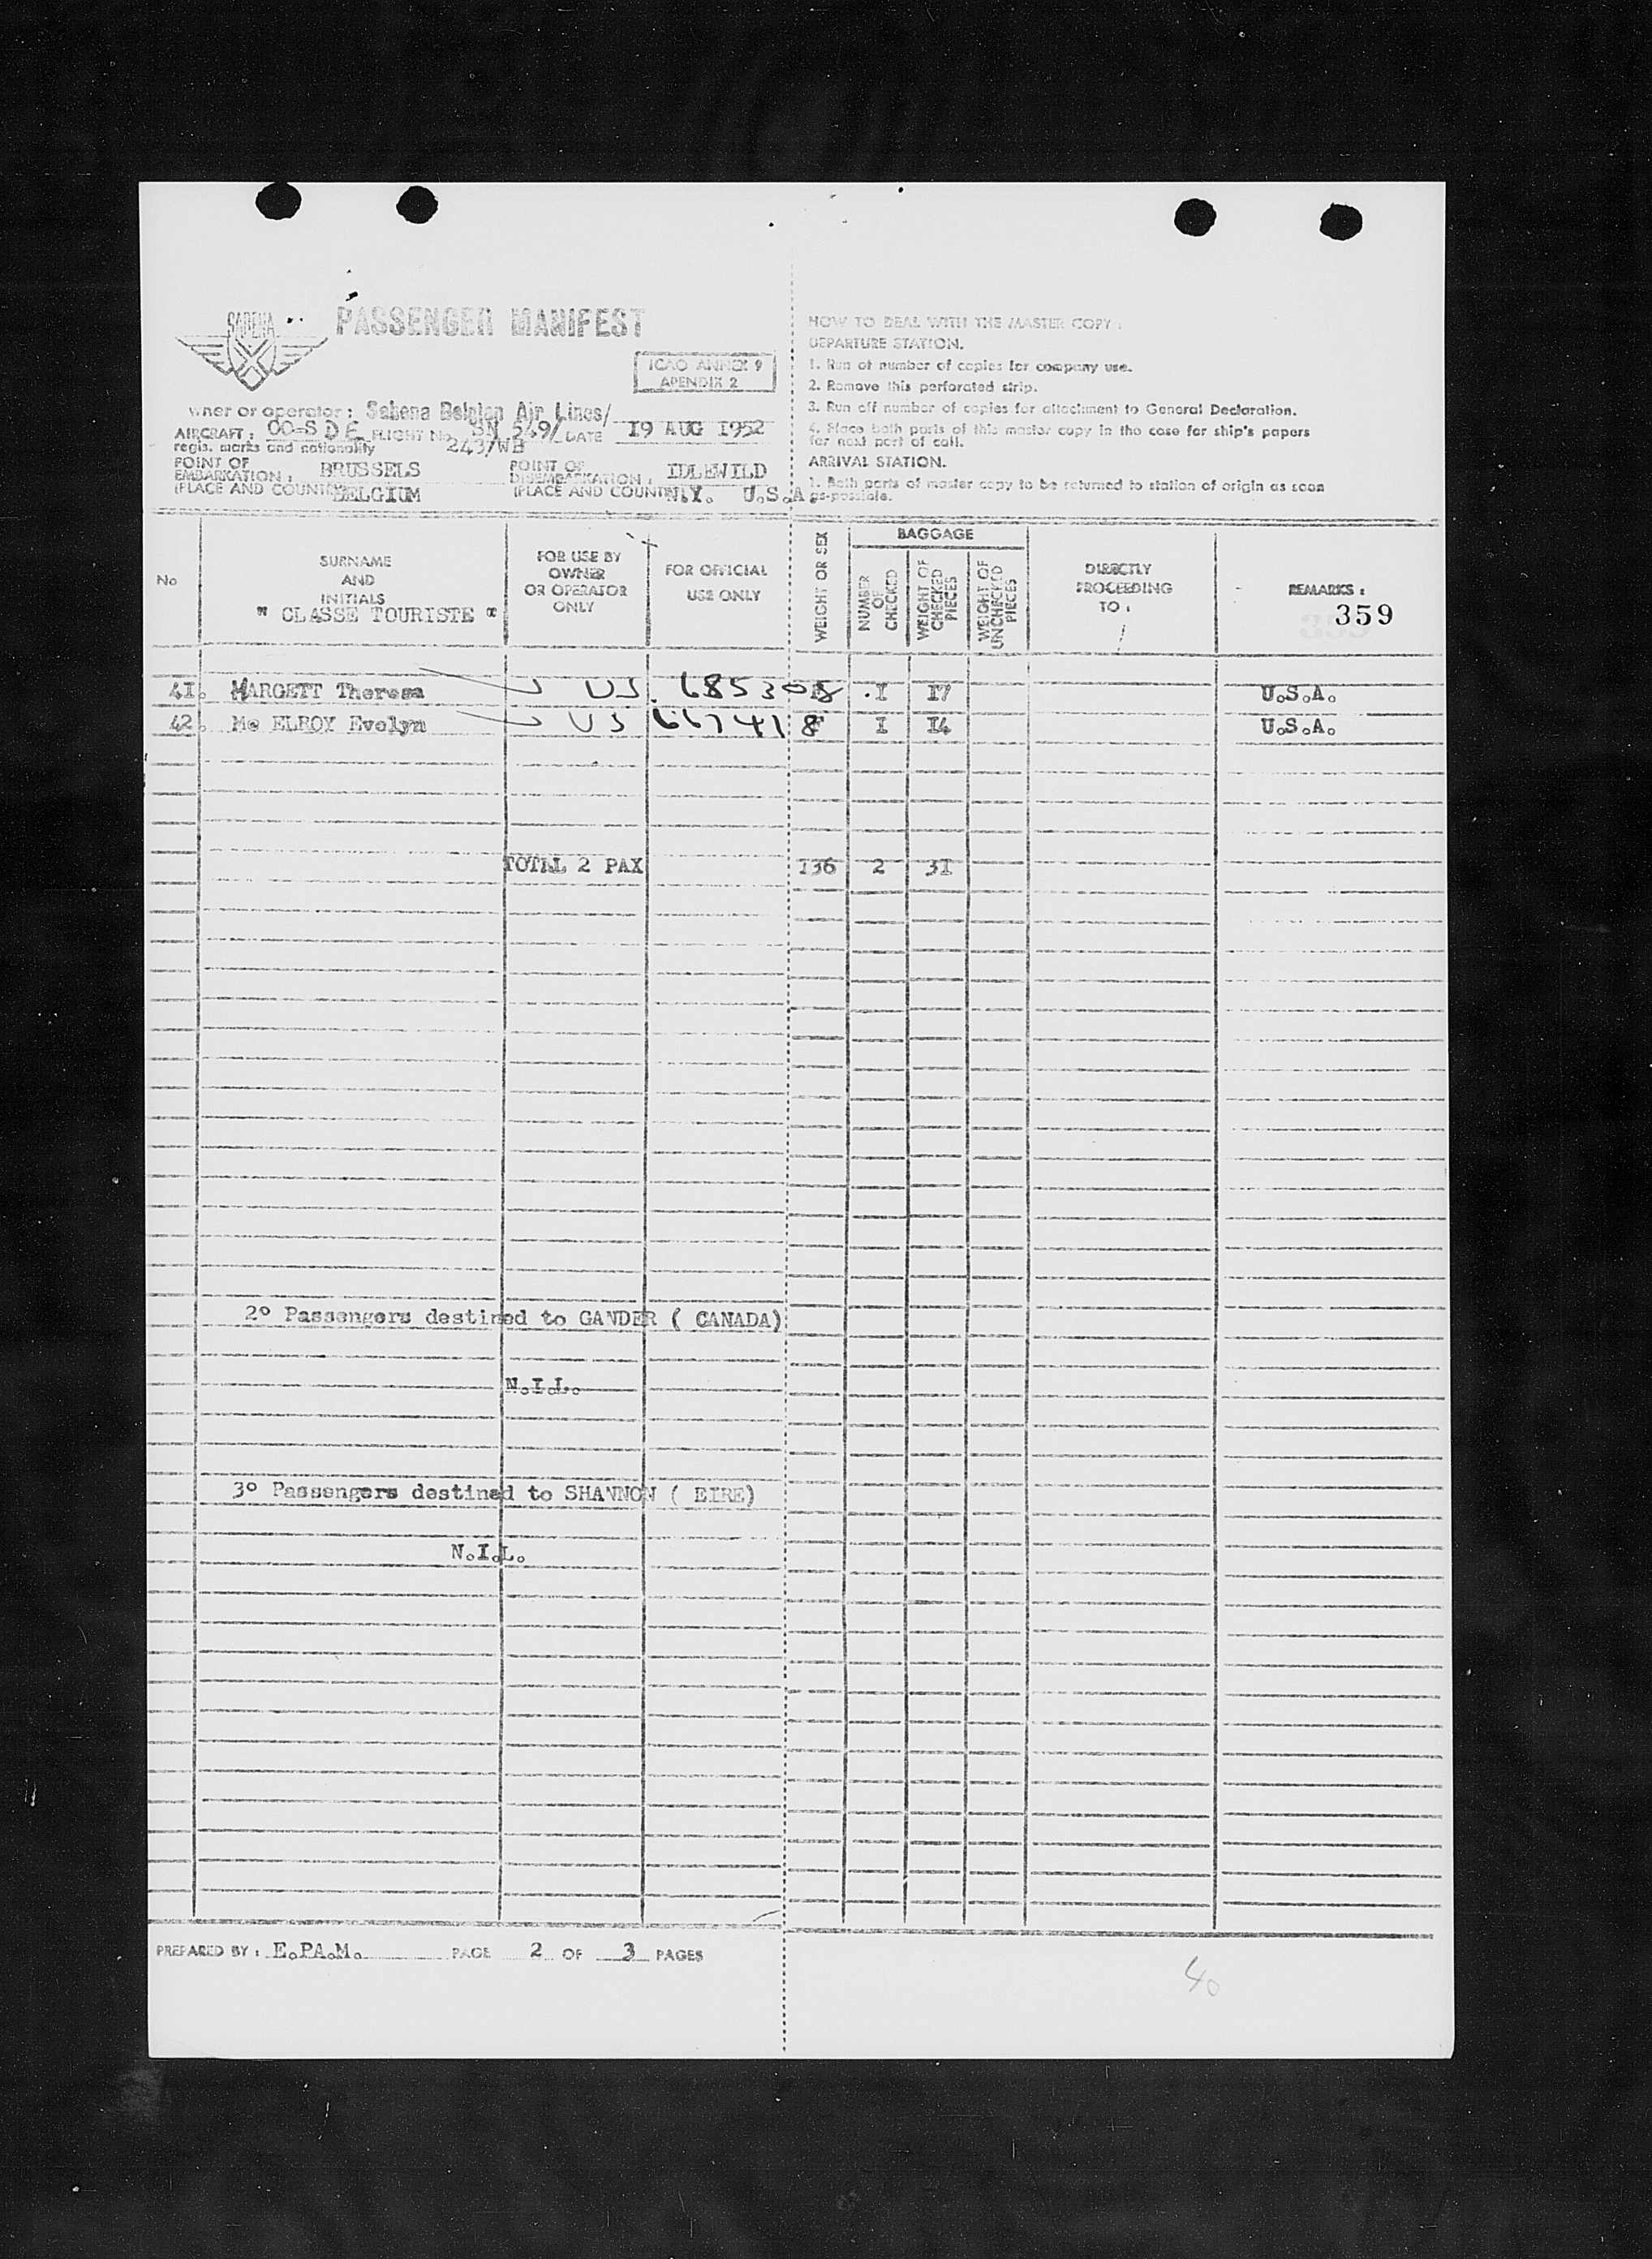 SABENA
PASSENGER MANIFEST
ICAO ANNEX 9
APENDIX 2
wner or operator : Sabena Belgian Air Lines/
AIRCRAFT : OO-SDE FLIGHT No SN 549/ DATE 19 AUG 1952
regis. marks and nationality 243/WB
POINT OF EMBARKATION : BRUSSELS POINT OF DISEMBARKATION : IDLEWILD
(PLACE AND COUNTRY) BELGIUM (PLACE AND COUNTRY) N.Y. U.S.A
HOW TO DEAL WITH THE MASTER COPY :
DEPARTURE STATION.
1. Run of number of copies for company use.
2. Remove this perforated strip.
3. Run off number of copies for attachment to General Declaration.
4. Place both parts of this master copy in the case for ship's papers
for next port of call.
ARRIVAL STATION.
1. Both parts of master copy to be returned to station of origin as soon
as possible.
No
SURNAME
AND
INITIALS
" CLASSE TOURISTE "
FOR USE BY
OWNER
OR OPERATOR
ONLY
FOR OFFICIAL
USE ONLY
WEIGHT OR SEX
BAGGAGE
NUMBER
OF
CHECKED
WEIGHT OF
CHECKED
PIECES
WEIGHT OF
UNCHECKED
PIECES
DIRECTLY
PROCEEDING
TO :
REMARKS :
359
41. MARGETT Theresa US 685308 I 17 U.S.A.
42. Mc ELROY Evelyn US 667418 F I 14 U.S.A.
TOTAL 2 PAX 136 2 31
2° Passengers destined to GANDER ( CANADA)
N.I.L.
3° Passengers destined to SHANNON ( EIRE)
N.I.L.
PREPARED BY : E.PA.M. PAGE 2 OF 3 PAGES
40